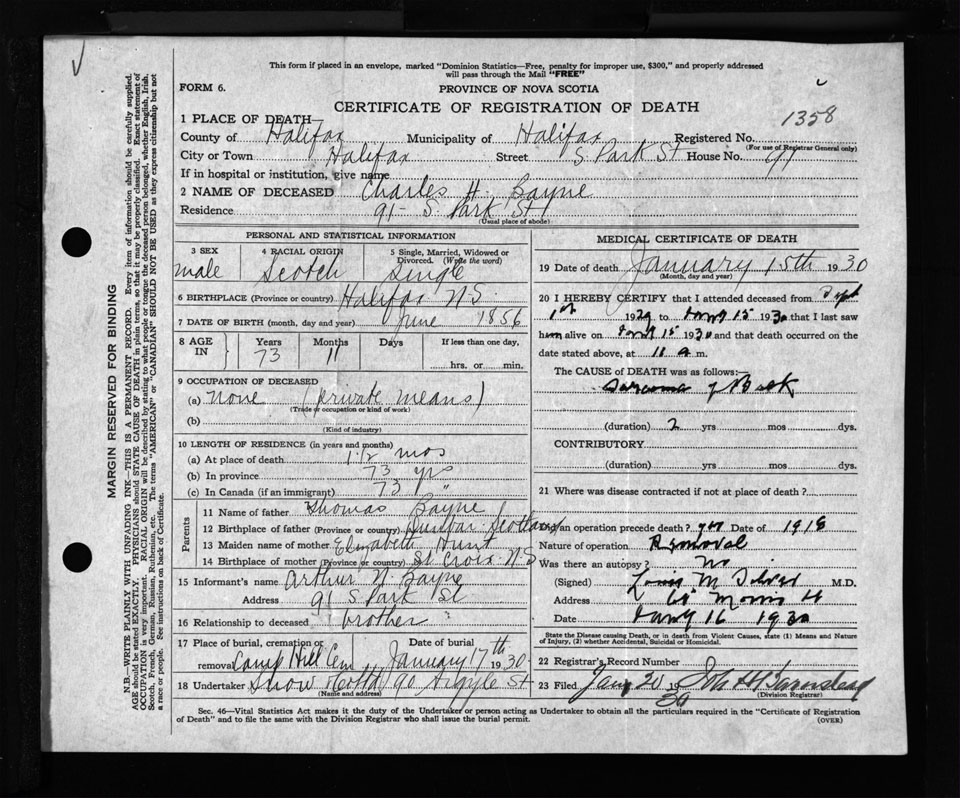 This form if placed in an envelope, marked "Dominion Statistics—Free, penalty for improper use, $300," and properly addressed
will pass through the Mail "FREE"
FORM 6. PROVINCE OF NOVA SCOTIA
CERTIFICATE OF REGISTRATION OF DEATH
1358
1 PLACE OF DEATH
County of Halifax Municipality of Halifax Registered No.
(For use of Registrar General only)
City or Town Halifax Street S. Park St House No. 91
If in hospital or institution, give name
2 NAME OF DECEASED Charles H. Bayne
Residence 91- S. Park St
(Usual place of abode)
PERSONAL AND STATISTICAL INFORMATION
3 SEX 4 RACIAL ORIGIN 5 Single, Married, Widowed or
Divorced. (Write the word)
male Scotch Single
6 BIRTHPLACE (Province or country) Halifax N.S.
7 DATE OF BIRTH (month, day and year) June 1856
8 AGE IN Years Months Days If less than one day,
73 11 hrs. or min.
9 OCCUPATION OF DECEASED
(a) none (private means)
(Trade or occupation or kind of work)
(b)
(Kind of industry)
10 LENGTH OF RESIDENCE (in years and months)
(a) At place of death 1 1/2 mos
(b) In province 73 yrs
(c) In Canada (if an immigrant) 73 "
Parents
11 Name of father Thomas Bayne
12 Birthplace of father (Province or country) Dunbar Scotland
13 Maiden name of mother Elizabeth Hunt
14 Birthplace of mother (Province or country) St Croix N.S
15 Informant's name Arthur N. Bayne
Address 91 S Park St
16 Relationship to deceased brother
17 Place of burial, cremation or Date of burial
removal Camp Hill Cem January 17th 1930
18 Undertaker Snow & Co Ltd 90 Argyle St
(Name and address)
MEDICAL CERTIFICATE OF DEATH
19 Date of death January 15th 1930
(Month, day and year)
20 I HEREBY CERTIFY that I attended deceased from Sept
1st 1929 to Jany 15 1930 that I last saw
him alive on Jany 15 1930 and that death occurred on the
date stated above, at 11 a m.
The CAUSE OF DEATH was as follows:—
Sarcoma of Back
(duration) 2 yrs mos dys.
CONTRIBUTORY
(duration) yrs mos dys.
21 Where was disease contracted if not at place of death?
Did an operation precede death? yes Date of 1918
Nature of operation Removal
Was there an autopsy? No
(Signed) Louis M Silver M.D.
Address Morris St
Date Jany 16 1930
State the Disease causing Death, or in death from Violent Causes, state (1) Means and Nature
of Injury, (2) whether Accidental, Suicidal or Homicidal.
22 Registrar's Record Number
23 Filed Jany 20 1930 John H Barnstead
(Division Registrar)
Sec. 46—Vital Statistics Act makes it the duty of the Undertaker or person acting as Undertaker to obtain all the particulars required in the "Certificate of Registration
of Death" and to file the same with the Division Registrar who shall issue the burial permit. (OVER)
MARGIN RESERVED FOR BINDING
N.B.—WRITE PLAINLY WITH UNFADING INK—THIS IS A PERMANENT RECORD. Every item of information should be carefully supplied.
AGE should be stated EXACTLY. PHYSICIANS should STATE CAUSE OF DEATH in plain terms, so that it may be properly classified. Exact statement of
OCCUPATION is very important. RACIAL ORIGIN will be described by stating to what people or tongue the deceased person belonged, whether English, Irish,
Scotch, French, German, Russian, Ruthenian, etc. The terms "AMERICAN" or "CANADIAN" SHOULD NOT BE USED as they express citizenship but not
a race or people. See instructions on back of Certificate.